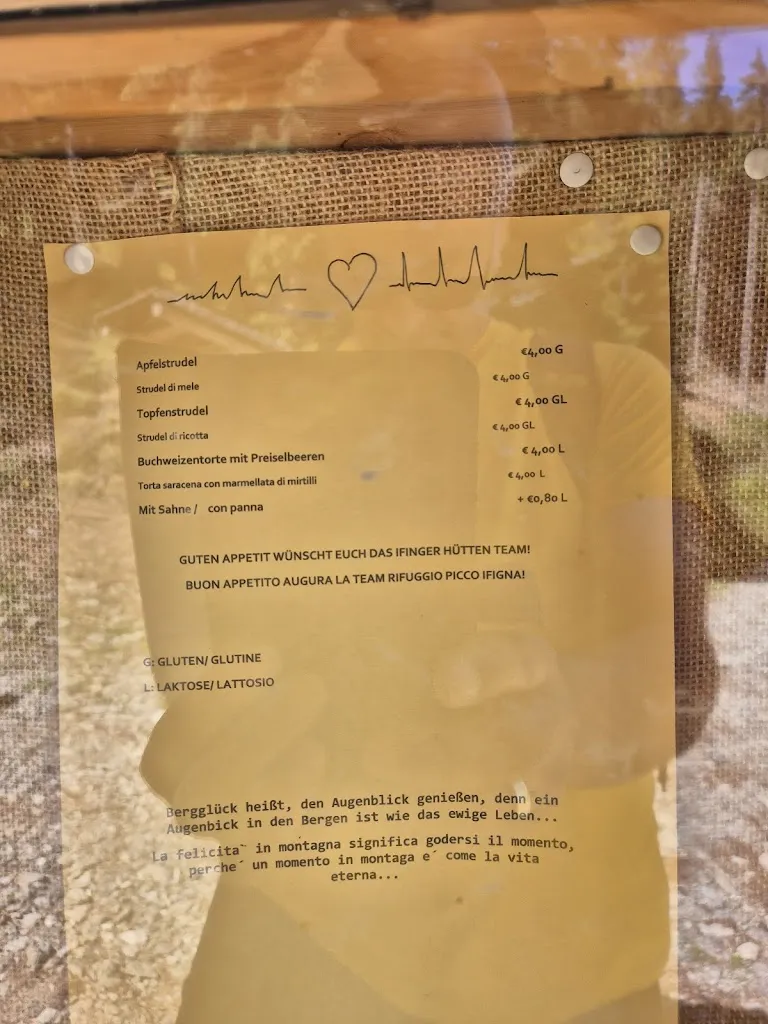 Apfelstrudel €4,00 G
Strudel di mele €4,00 G
Topfenstrudel € 4,00 GL
Strudel di ricotta € 4,00 GL
Buchweizentorte mit Preiselbeeren € 4,00 L
Torta saracena con marmellata di mirtilli € 4,00 L
Mit Sahne / con panna + €0,80 L
GUTEN APPETIT WÜNSCHT EUCH DAS IFINGER HÜTTEN TEAM!
BUON APPETITO AUGURA LA TEAM RIFUGGIO PICCO IFIGNA!
G: GLUTEN/ GLUTINE
L: LAKTOSE/ LATTOSIO
Bergglück heißt, den Augenblick genießen, denn ein
Augenbick in den Bergen ist wie das ewige Leben...
La felicita` in montagna significa godersi il momento,
perche´ un momento in montaga e´ come la vita
eterna...